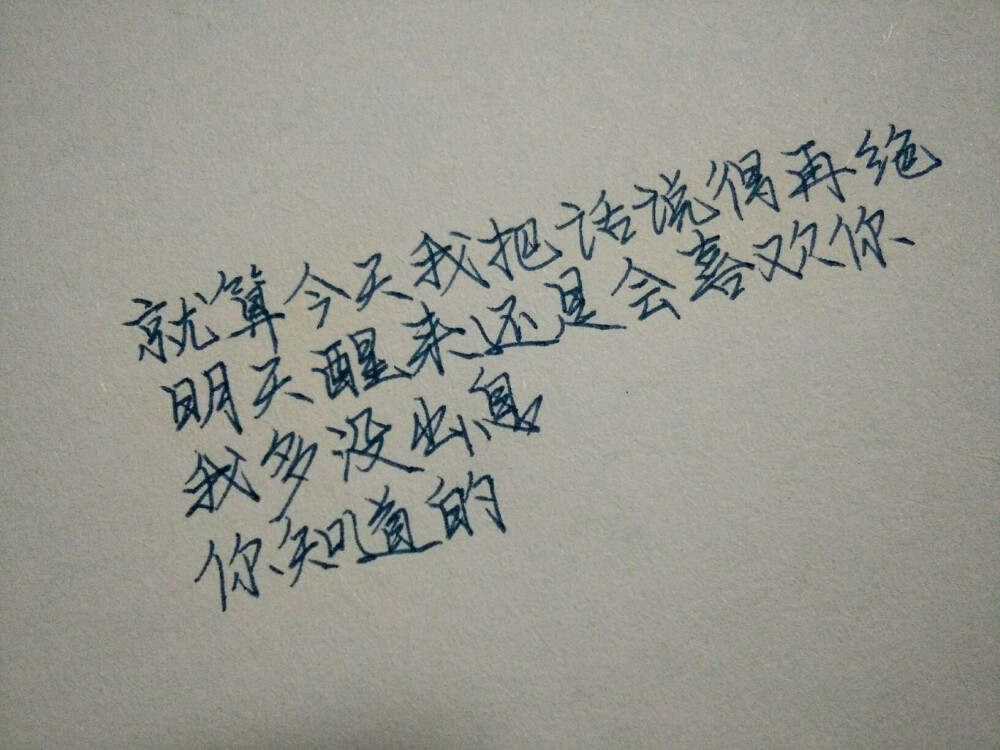 就算今天我把话说得再绝
明天醒来还是会喜欢你
我多没出息
你知道的